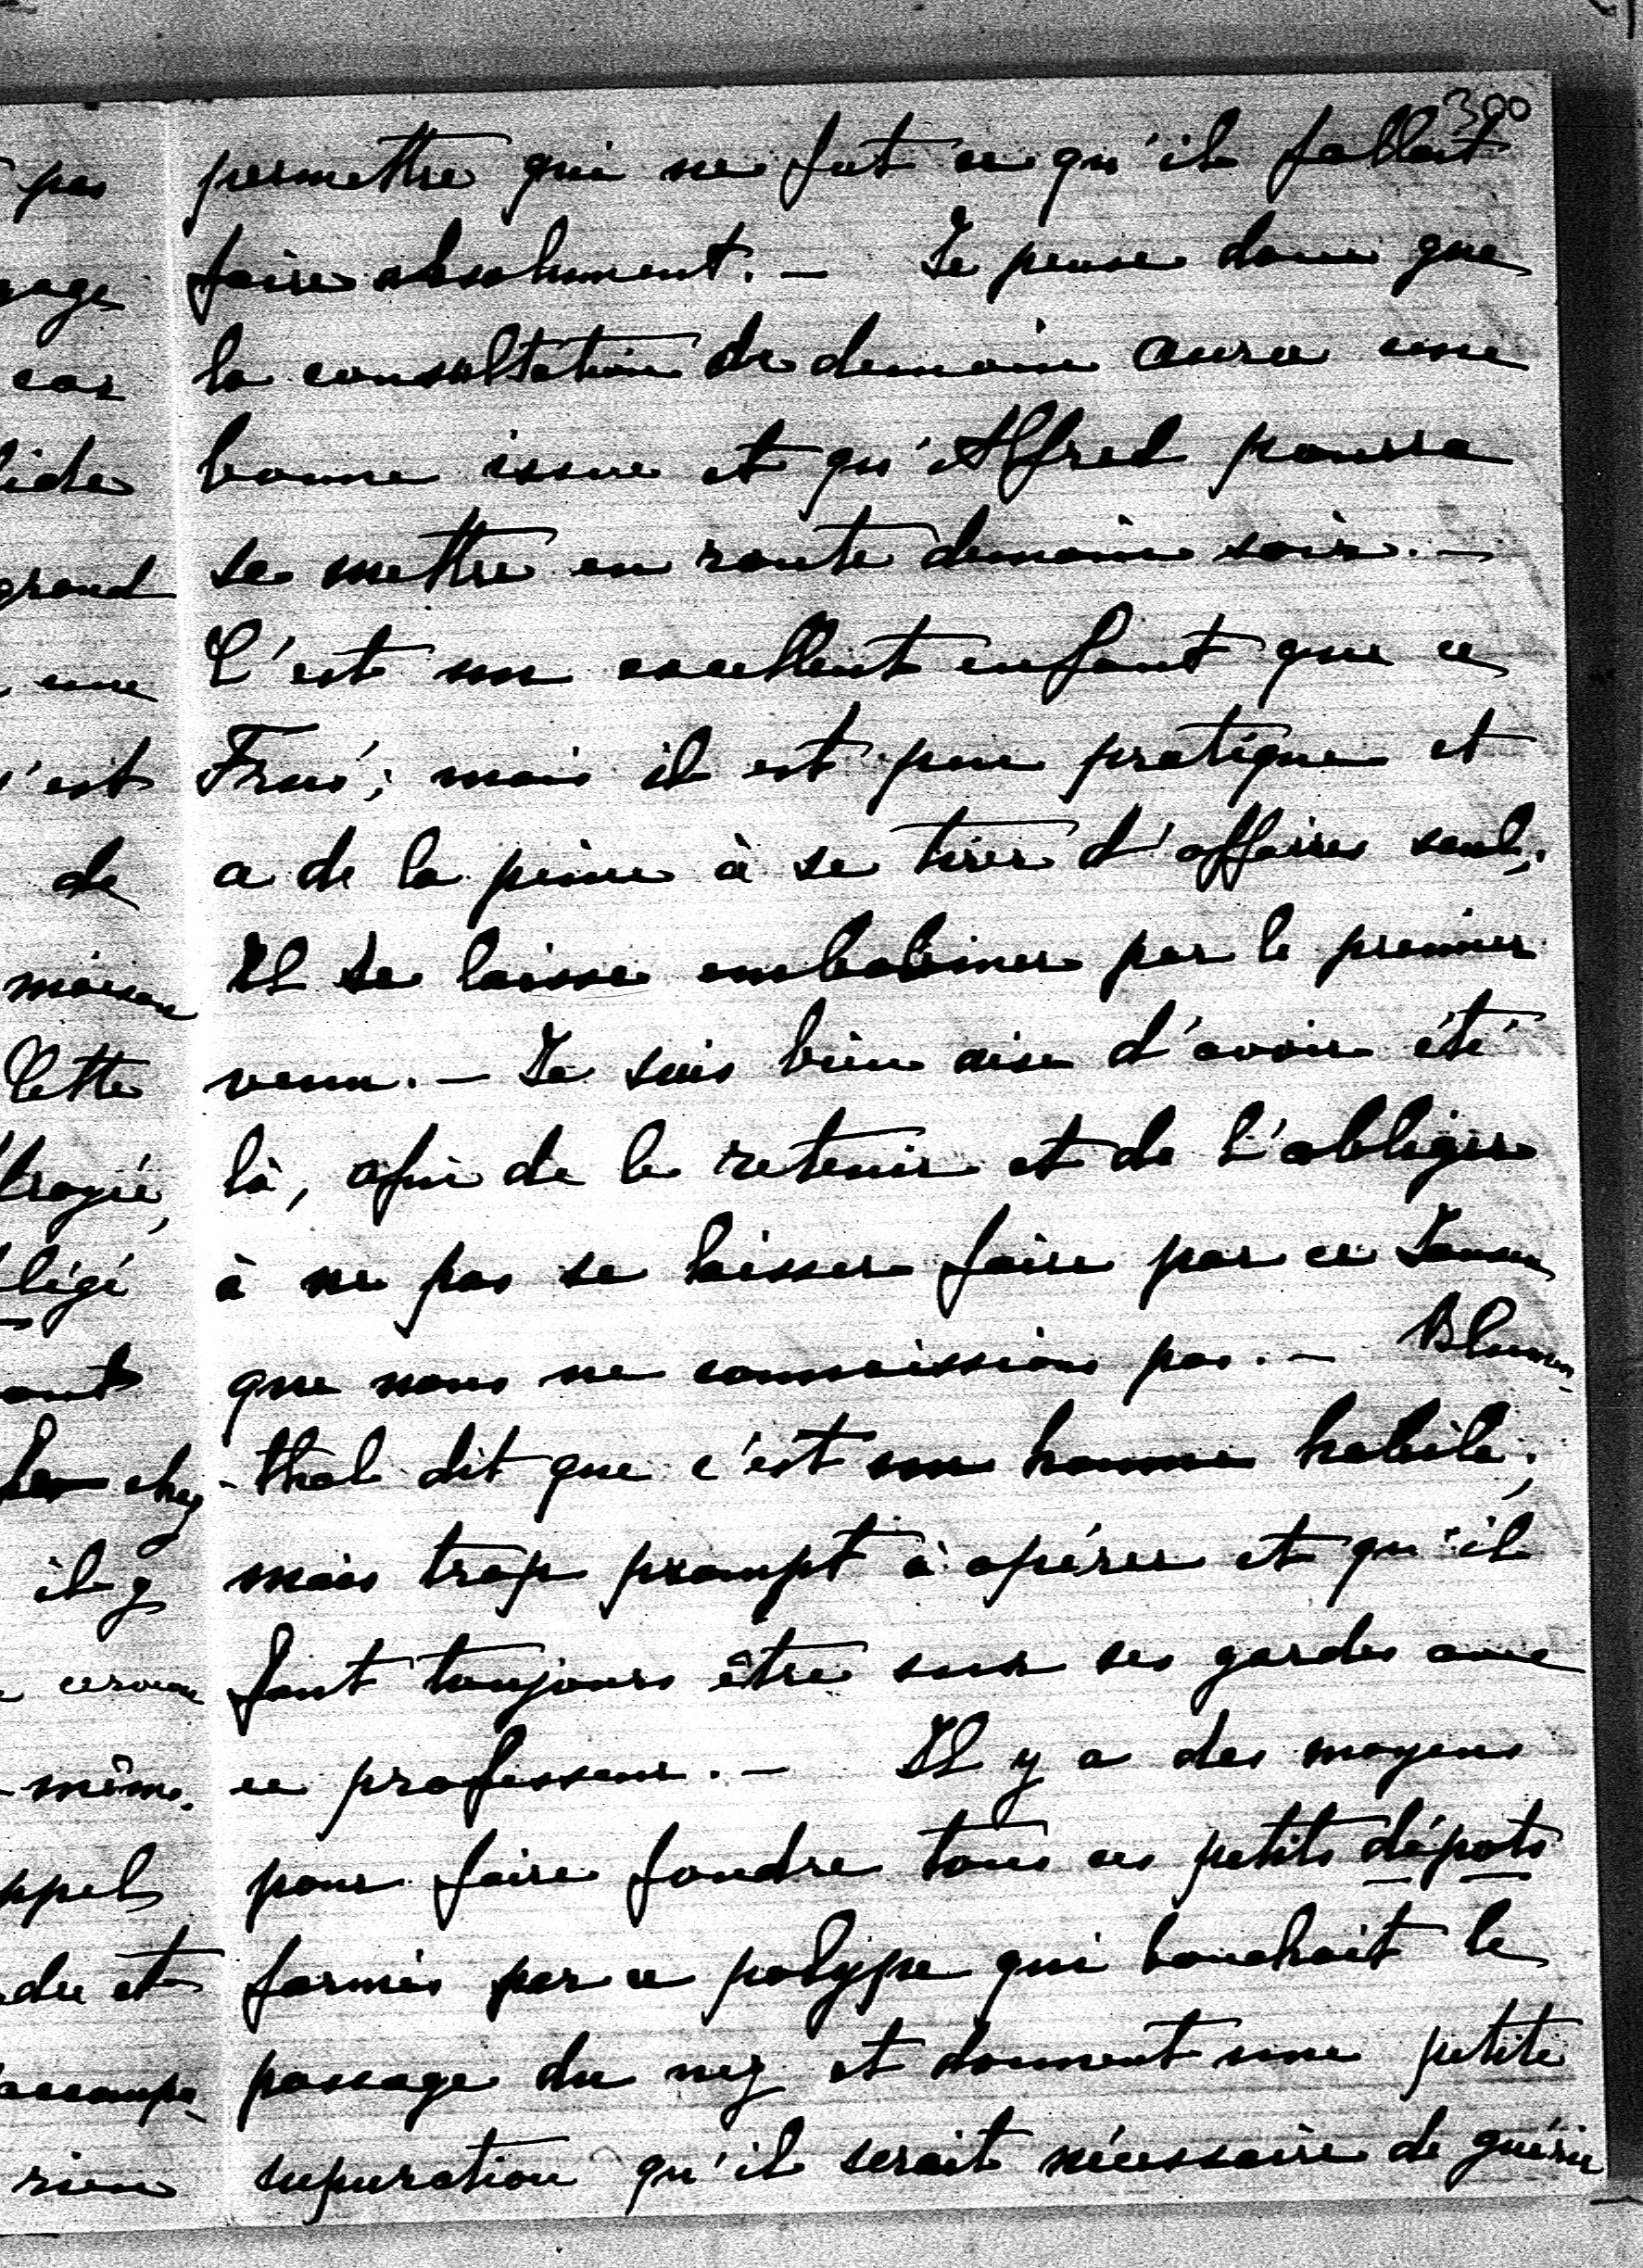 300
permettre qui ne fut ce qu'il fallait
faire absolument. — Je pense donc que
la consultation de demain aura une
bonne issue et qu'Alfred pourra
se mettre en route demain soir. —
C'est un excellent enfant que ce
mais il est peu pratique et
a de la peine à se tirer d'affaires seul;
Il se laisse embobiner par le premier
venu. — Je suis bien aise d'avoir été
là, afin de le retenir et de l'obliger
à ne pas se laisser faire par ce
que nous ne connaissions pas. — Blumen-
-thal dit que c'est un homme habile;
mais trop prompt à opérer et qu'il
faut toujours être sur ses gardes avec
ce professeur. — Il y a des moyens
pour faire fondre tous ces petits dépots
formés par ce polype qui bouchait le
passage du nez et donnent une petite
supuration qu'il serait nécessaire de guérir
pas
car
grand
une
c'est
de
maison
chez
il y
même.
du et
rien